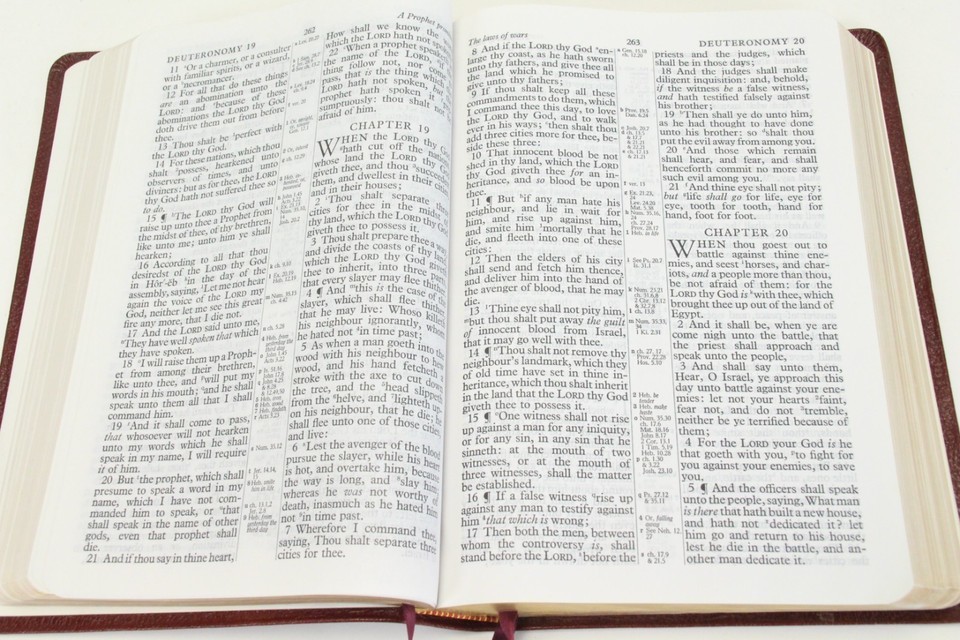 DEUTERONOMY 19
262
A Prophet
11 Or a charmer, or a consulter
with familiar spirits, or a wizard,
or a necromancer.
12 For all that do these things
are an abomination unto the
LORD: and because of these
abominations the LORD thy God
doth drive them out from before
thee.
13 Thou shalt be perfect with
the LORD thy God.
14 For these nations, which thou
shalt possess, hearkened unto
observers of times, and unto
diviners: but as for thee, the LORD
thy God hath not suffered thee so
to do.
15 ¶ The LORD thy God will
raise up unto thee a Prophet from
the midst of thee, of thy brethren,
like unto me; unto him ye shall
hearken;
16 According to all that thou
desiredst of the LORD thy God
in Hôr´-ĕb in the day of the
assembly, saying, Let me not hear
again the voice of the LORD my
God, neither let me see this great
fire any more, that I die not.
17 And the LORD said unto me,
They have well spoken that which
they have spoken.
18 I will raise them up a Proph-
et from among their brethren,
like unto thee, and will put my
words in his mouth; and he shall
speak unto them all that I shall
command him.
19 And it shall come to pass,
that whosoever will not hearken
unto my words which he shall
speak in my name, I will require
it of him.
20 But the prophet, which shall
presume to speak a word in my
name, which I have not com-
manded him to speak, or that
shall speak in the name of other
gods, even that prophet shall
die.
21 And if thou say in thine heart,
How shall we know the
which the LORD hath not spoken
22 When a prophet speaketh
the name of the LORD, if the
thing follow not, nor come
pass, that is the thing which
LORD hath not spoken, but
prophet hath spoken it
sumptuously: thou shalt not
afraid of him.
CHAPTER 19
WHEN the LORD thy God
hath cut off the nations
whose land the LORD thy God
giveth thee, and thou succeed
them, and dwellest in their cities
and in their houses;
2 Thou shalt separate three
cities for thee in the midst
thy land, which the LORD thy God
giveth thee to possess it.
3 Thou shalt prepare thee a way
and divide the coasts of thy land
which the LORD thy God giveth
thee to inherit, into three parts
that every slayer may flee thither
4 ¶ And this is the case of the
slayer, which shall flee thither
that he may live: Whoso killeth
his neighbour ignorantly, whom
he hated not in time past;
5 As when a man goeth into the
wood with his neighbour to hew
wood, and his hand fetcheth
stroke with the axe to cut down
the tree, and the head slippeth
from the helve, and lighteth upon
his neighbour, that he die; he
shall flee unto one of those cities
and live:
6 Lest the avenger of the blood
pursue the slayer, while his heart
is hot, and overtake him, because
the way is long, and slay him;
whereas he was not worthy of
death, inasmuch as he hated him
not in time past.
7 Wherefore I command thee,
saying, Thou shalt separate three
cities for thee.
The laws of tears
263
DEUTERONOMY 20
8 And if the LORD thy God en-
large thy coast, as he hath sworn
unto thy fathers, and give thee all
the land which he promised to
give unto thy fathers;
9 If thou shalt keep all these
commandments to do them, which
I command thee this day, to love
the LORD thy God, and to walk
ever in his ways; then shalt thou
add three cities more for thee, be-
side these three:
10 That innocent blood be not
shed in thy land, which the LORD
thy God giveth thee for an in-
heritance, and so blood be upon
thee.
11 ¶ But if any man hate his
neighbour, and lie in wait for
him, and rise up against him,
and smite him mortally that he
die, and fleeth into one of these
cities:
12 Then the elders of his city
shall send and fetch him thence,
and deliver him into the hand of
the avenger of blood, that he may
die.
13 Thine eye shall not pity him,
but thou shalt put away the guilt
of innocent blood from Israel,
that it may go well with thee.
14 ¶ Thou shalt not remove thy
neighbour's landmark, which they
of old time have set in thine in-
heritance, which thou shalt inherit
in the land that the LORD thy God
giveth thee to possess it.
15 ¶ One witness shall not rise
up against a man for any iniquity,
or for any sin, in any sin that he
sinneth: at the mouth of two
witnesses, or at the mouth of
three witnesses, shall the matter
be established.
16 ¶ If a false witness rise up
against any man to testify against
him that which is wrong;
17 Then both the men, between
whom the controversy is, shall
stand before the LORD, before the
priests and the judges, which
shall be in those days;
18 And the judges shall make
diligent inquisition: and, behold,
if the witness be a false witness,
and hath testified falsely against
his brother;
19 Then shall ye do unto him,
as he had thought to have done
unto his brother: so shalt thou
put the evil away from among you.
20 And those which remain
shall hear, and fear, and shall
henceforth commit no more any
such evil among you.
21 And thine eye shall not pity;
but life shall go for life, eye for
eye, tooth for tooth, hand for
hand, foot for foot.
CHAPTER 20
WHEN thou goest out to
battle against thine ene-
mies, and seest horses, and char-
iots, and a people more than thou,
be not afraid of them: for the
LORD thy God is with thee, which
brought thee up out of the land of
Egypt.
2 And it shall be, when ye are
come nigh unto the battle, that
the priest shall approach and
speak unto the people,
3 And shall say unto them,
Hear, O Israel, ye approach this
day unto battle against your ene-
mies: let not your hearts faint,
fear not, and do not tremble,
neither be ye terrified because of
them;
4 For the LORD your God is he
that goeth with you, to fight for
you against your enemies, to save
you.
5 ¶ And the officers shall speak
unto the people, saying, What man
is there that hath built a new house,
and hath not dedicated it? let
him go and return to his house,
lest he die in the battle, and an-
other man dedicate it.